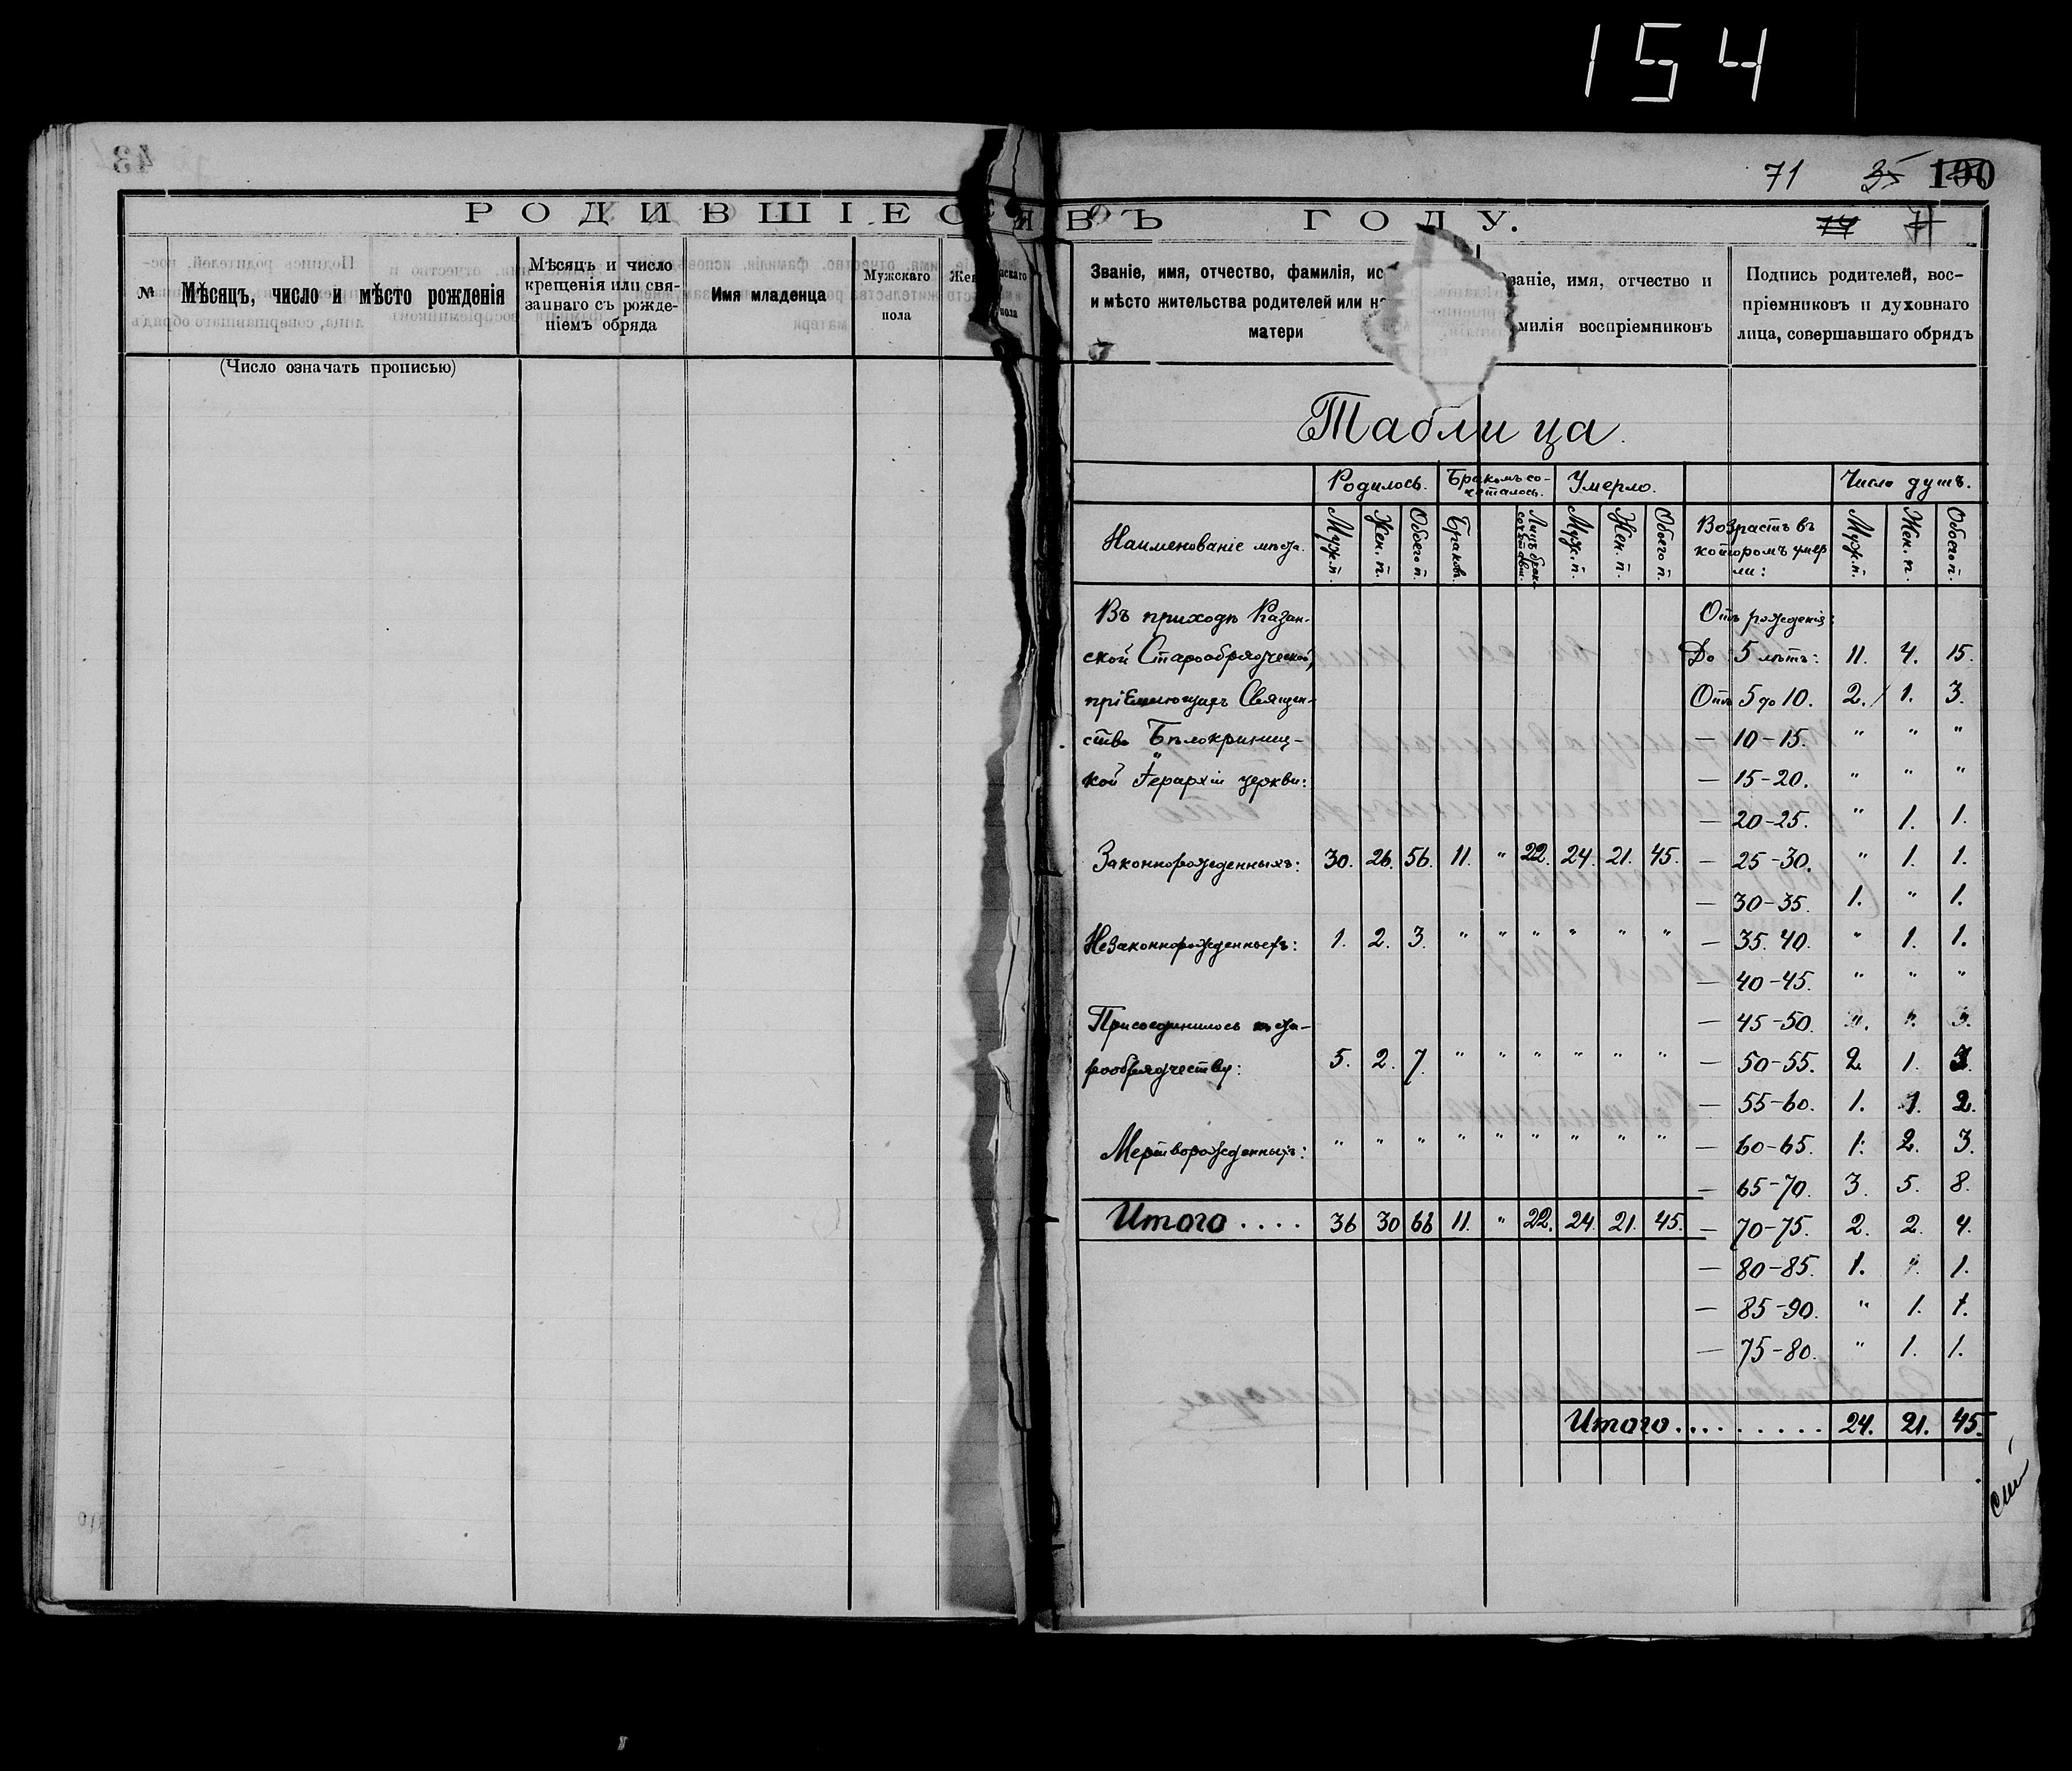 154
43
71 35 100
РОДИВШІЕСЯ ВЪ ГОДУ.
74 71
№
Мѣсяцъ, число и мѣсто рожденія
Мѣсяцъ и число
крещенія или свя-
заннаго съ рожде-
ніемъ обряда
Имя младенца
Мужскаго
пола
Жен
скаго
пола
(Число означать прописью)
Званіе, имя, отчество, фамилія, ис
и мѣсто жительства родителей или
матери
ваніе, имя, отчество и
милія воспріемниковъ
Подпись родителей, вос-
пріемниковъ и духовнаго
лица, совершавшаго обрядъ
Таблица.
Родилось. Бракомъ со- Умерло. Число душъ.
четалось.
Наименованіе мѣста.
Муж. п. Жен. п. Обоего п. Браковъ. Муж. п. Жен. п. Обоего п.
Возрастъ въ
которомъ умер
ли:
Муж. п. Жен. п. Обоего п.
Въ приходѣ Казан-
ской Старообрядческой,
пріемлющихъ Священ-
ство Бѣлокриниц-
кой Іерархіи церкви:
Законнорожденныхъ: 30. 26. 56. 11. " 22. 24. 21. 45.
Незаконнорожденныхъ: 1. 2. 3. " " " " " "
Присоединилось къ ста-
рообрядчеству: 5. 2. 7. " " " " " "
Мертворожденныхъ: " " " " " " " " "
Итого .... 36 30 66 11. " 22. 24. 21. 45.
Отъ рожденія:
До 5 лѣтъ: 11. 4. 15.
Отъ 5 до 10. 2. 1. 3.
— 10-15. " " "
— 15-20. " " "
— 20-25. " 1. 1.
— 25-30. " 1. 1.
— 30-35. 1. " 1.
— 35. 40. " 1. 1.
— 40-45. " " "
— 45-50. " "
— 50-55. 2. 1. 3.
— 55-60. 1. 1. 2.
— 60-65. 1. 2. 3.
— 65-70. 3. 5. 8.
— 70-75. 2. 2. 4.
— 80-85. 1. " 1.
— 85-90. " 1. 1.
— 75-80. " 1. 1.
Итого......... 24. 21. 45.